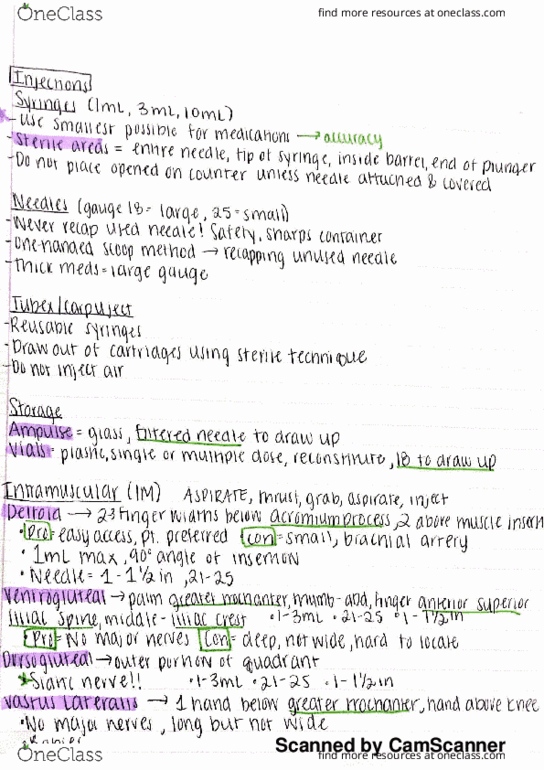 OneClass
find more resources at oneclass.com
Injections
Syringes (1mL, 3mL, 10mL)
- Use smallest possible for medications → accuracy
- Sterile areas = entire needle, tip of syringe, inside barrel, end of plunger
- Do not place opened on counter unless needle attached & covered
Needles (gauge 18 = large, 25 = small)
- Never recap used needle! Safety, sharps container
- One-handed scoop method → recapping unused needle
- Thick meds = large gauge
Tubex/Carpuject
- Reusable syringes
- Draw out of cartridges using sterile technique
- Do not inject air
Storage
Ampulse = glass, filtered needle to draw up
Vials = plastic, single or multiple dose, reconstitute, 18 to draw up
Intramuscular (IM) ASPIRATE, thrust, grab, aspirate, inject
Deltoid → 2-3 finger widths below acromium process, 2 above muscle insert
• Pro = easy access, pt. preferred Con = small, brachial artery
• 1mL max, 90° angle of insertion
• Needle = 1 - 1 1/2 in, 21-25
Ventrogluteal → palm greater trochanter, thumb-and, finger anterior superior
illial spine, middle - illiac crest • 1-3mL • 21-25 • 1 - 1 1/2 in
Pro = No major nerves Con = deep, not wide, hard to locate
Dorsogluteal → outer portion of quadrant
Siatic nerve!! • 1-3mL • 21-25 • 1 - 1 1/2 in
Vastus Lateralis → 1 hand below greater trochanter, hand above knee
• No major nerves, long but not wide
Scanned by CamScanner
OneClass
find more resources at oneclass.com